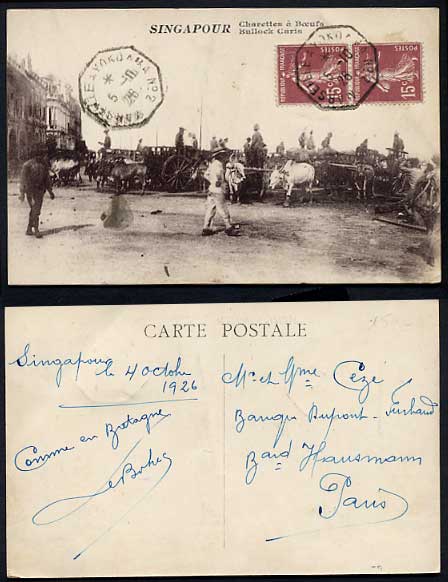 SINGAPOUR Charettes à Bœufs
Bullock Carts
MARSEILLE A YOKOHAMA N° 2
5 -10
26
REPUBLIQUE FRANÇAISE
POSTES
15c
REPUBLIQUE FRANÇAISE
POSTES
15c
CARTE POSTALE
Singapour
le 4 octobre
1926
Comme en Bretagne
Mr et Mme Cèze
Banque Dupont - Furland
Bard Hausmann
Paris